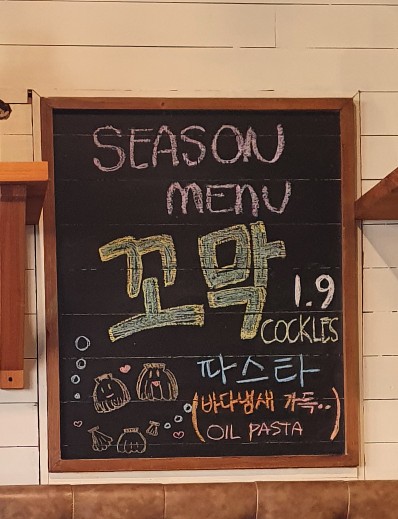 SEASON
MENU
꼬막
1.9
COCKLES
파스타
(바다냄새 가득..
OIL PASTA)